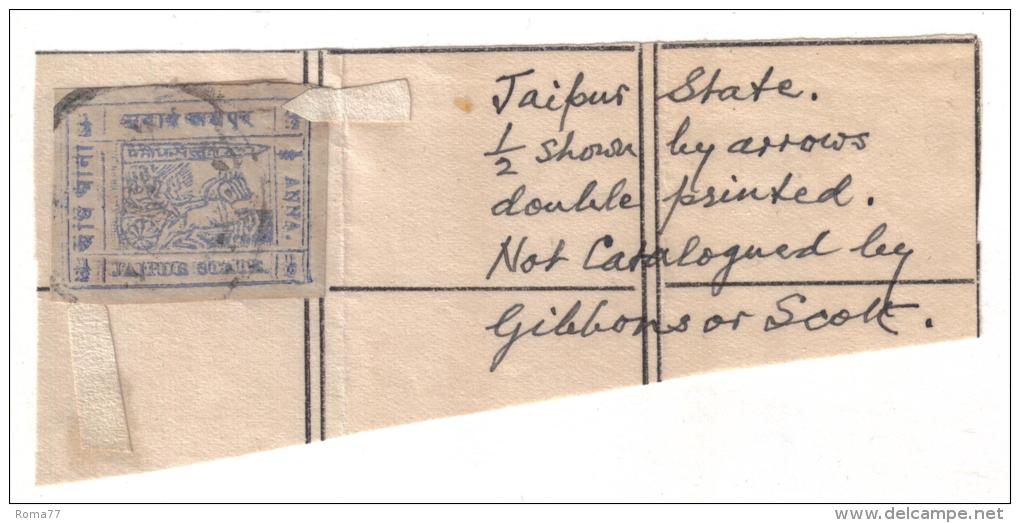 Jaipur State.
½ shown by arrows
double printed.
Not Catalogued by
Gibbons or Scott.
ANNA.
Roma77
delcampe.net